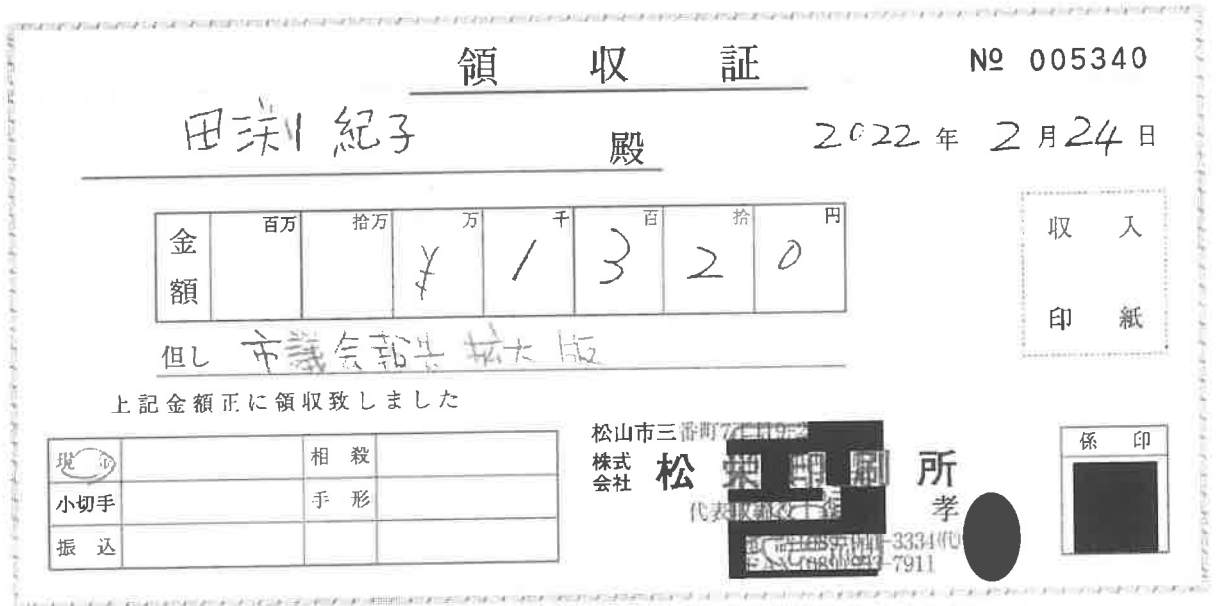 領収証
№ 005340
田渕 紀子 殿
2022年 2月24日
金額 百万 拾万 万 千 百 拾 円
¥1320
但し 市議会報告 拡大版
上記金額正に領収致しました
収入
印紙
現金 相殺
小切手 手形
振込
松山市三番町7丁目
株式会社 松栄印刷所
代表取締役 孝
-3334(代)
-7911
係印